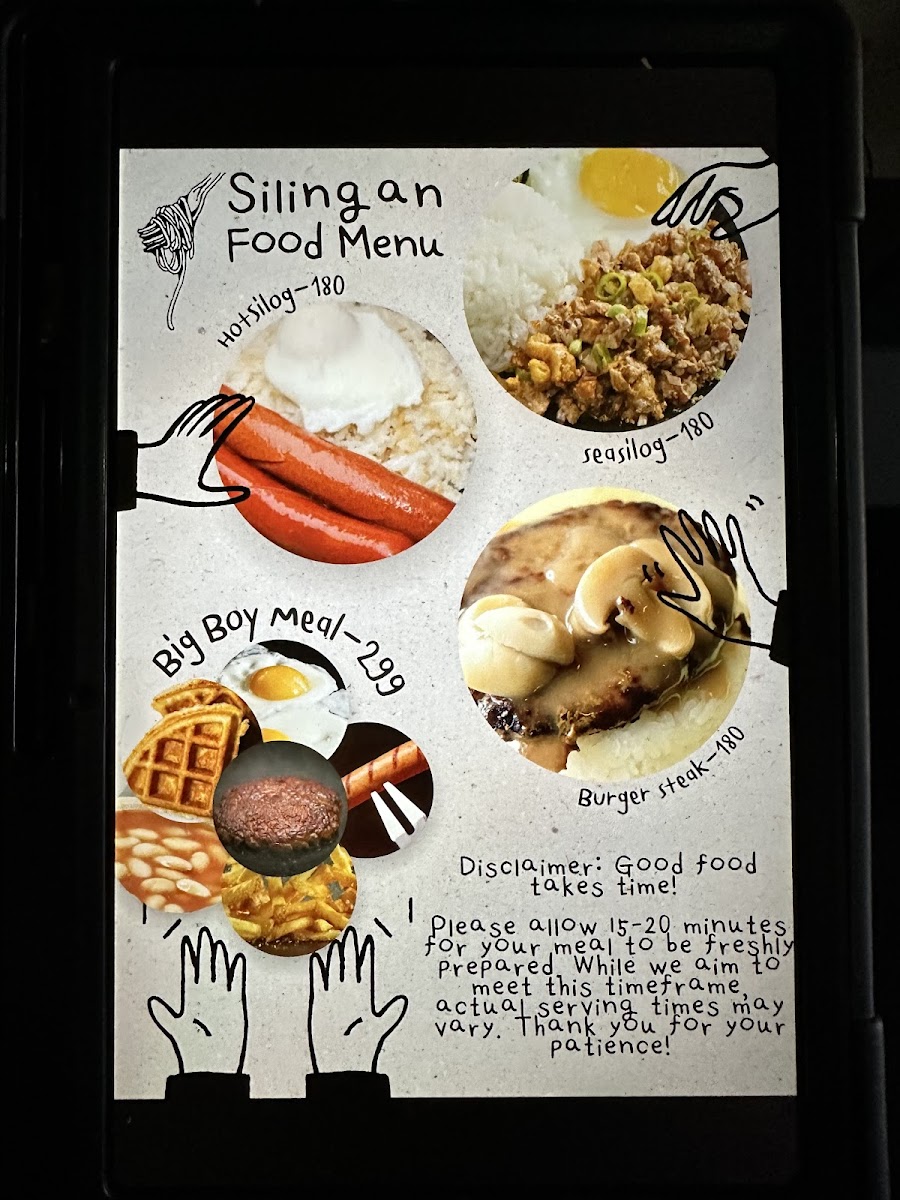 Silingan
Food Menu
Hotsilog-180
seasilog-180
Big Boy Meal-299
Burger steak-180
Disclaimer: Good food
takes time!
Please allow 15-20 minutes
for your meal to be freshly
prepared. While we aim to
meet this timeframe,
actual serving times may
vary. Thank you for your
patience!